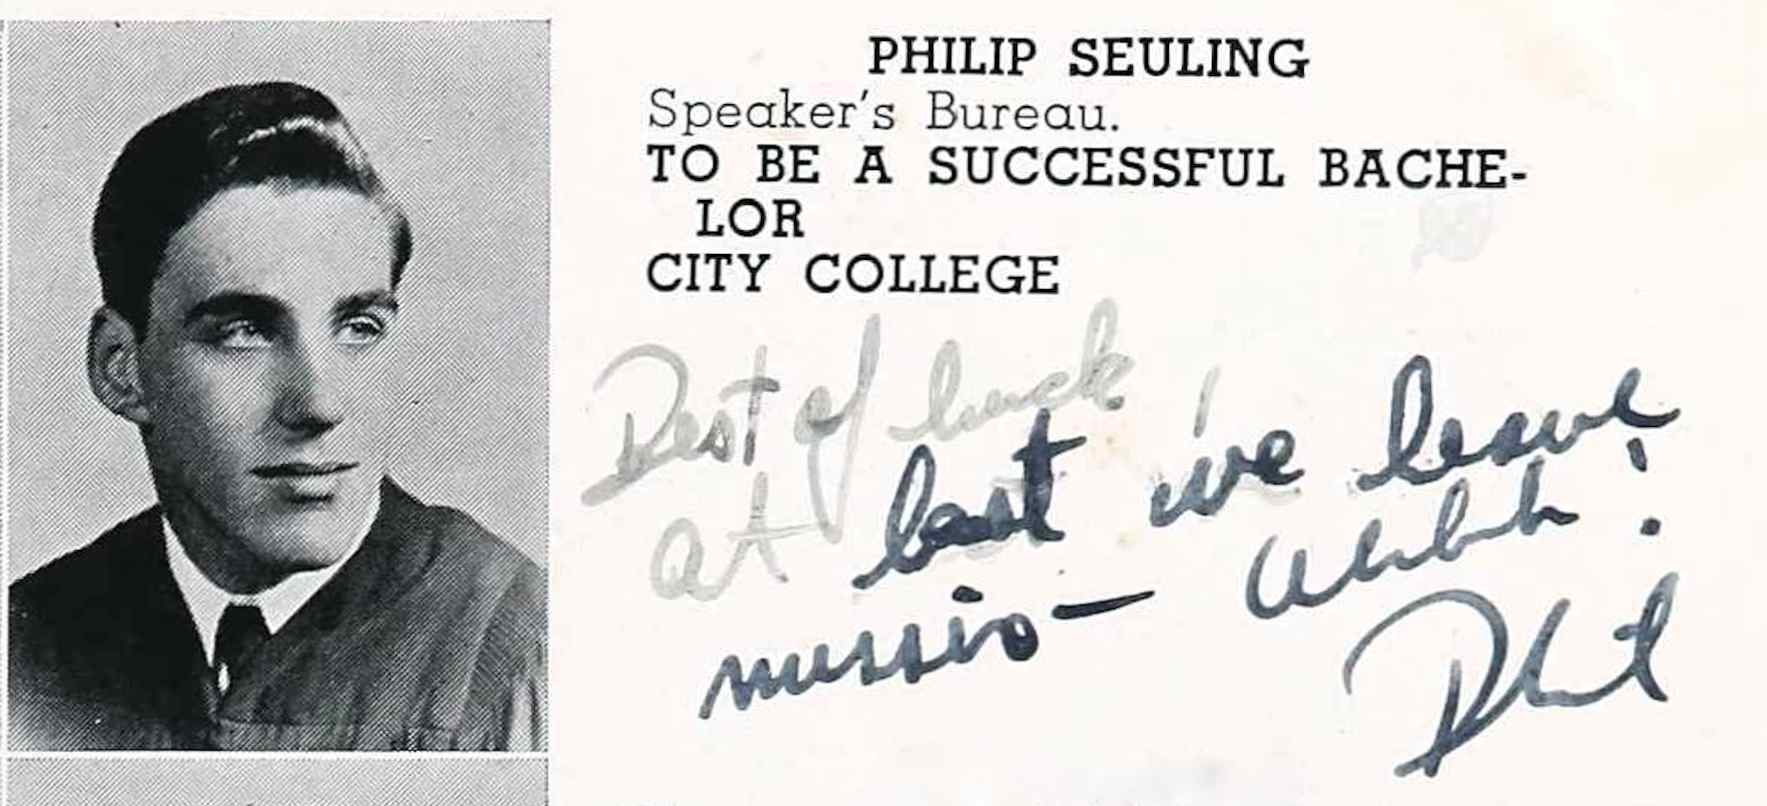 PHILIP SEULING
Speaker's Bureau.
TO BE A SUCCESSFUL BACHE-
LOR
CITY COLLEGE
Best of luck
At last we leave
Phil